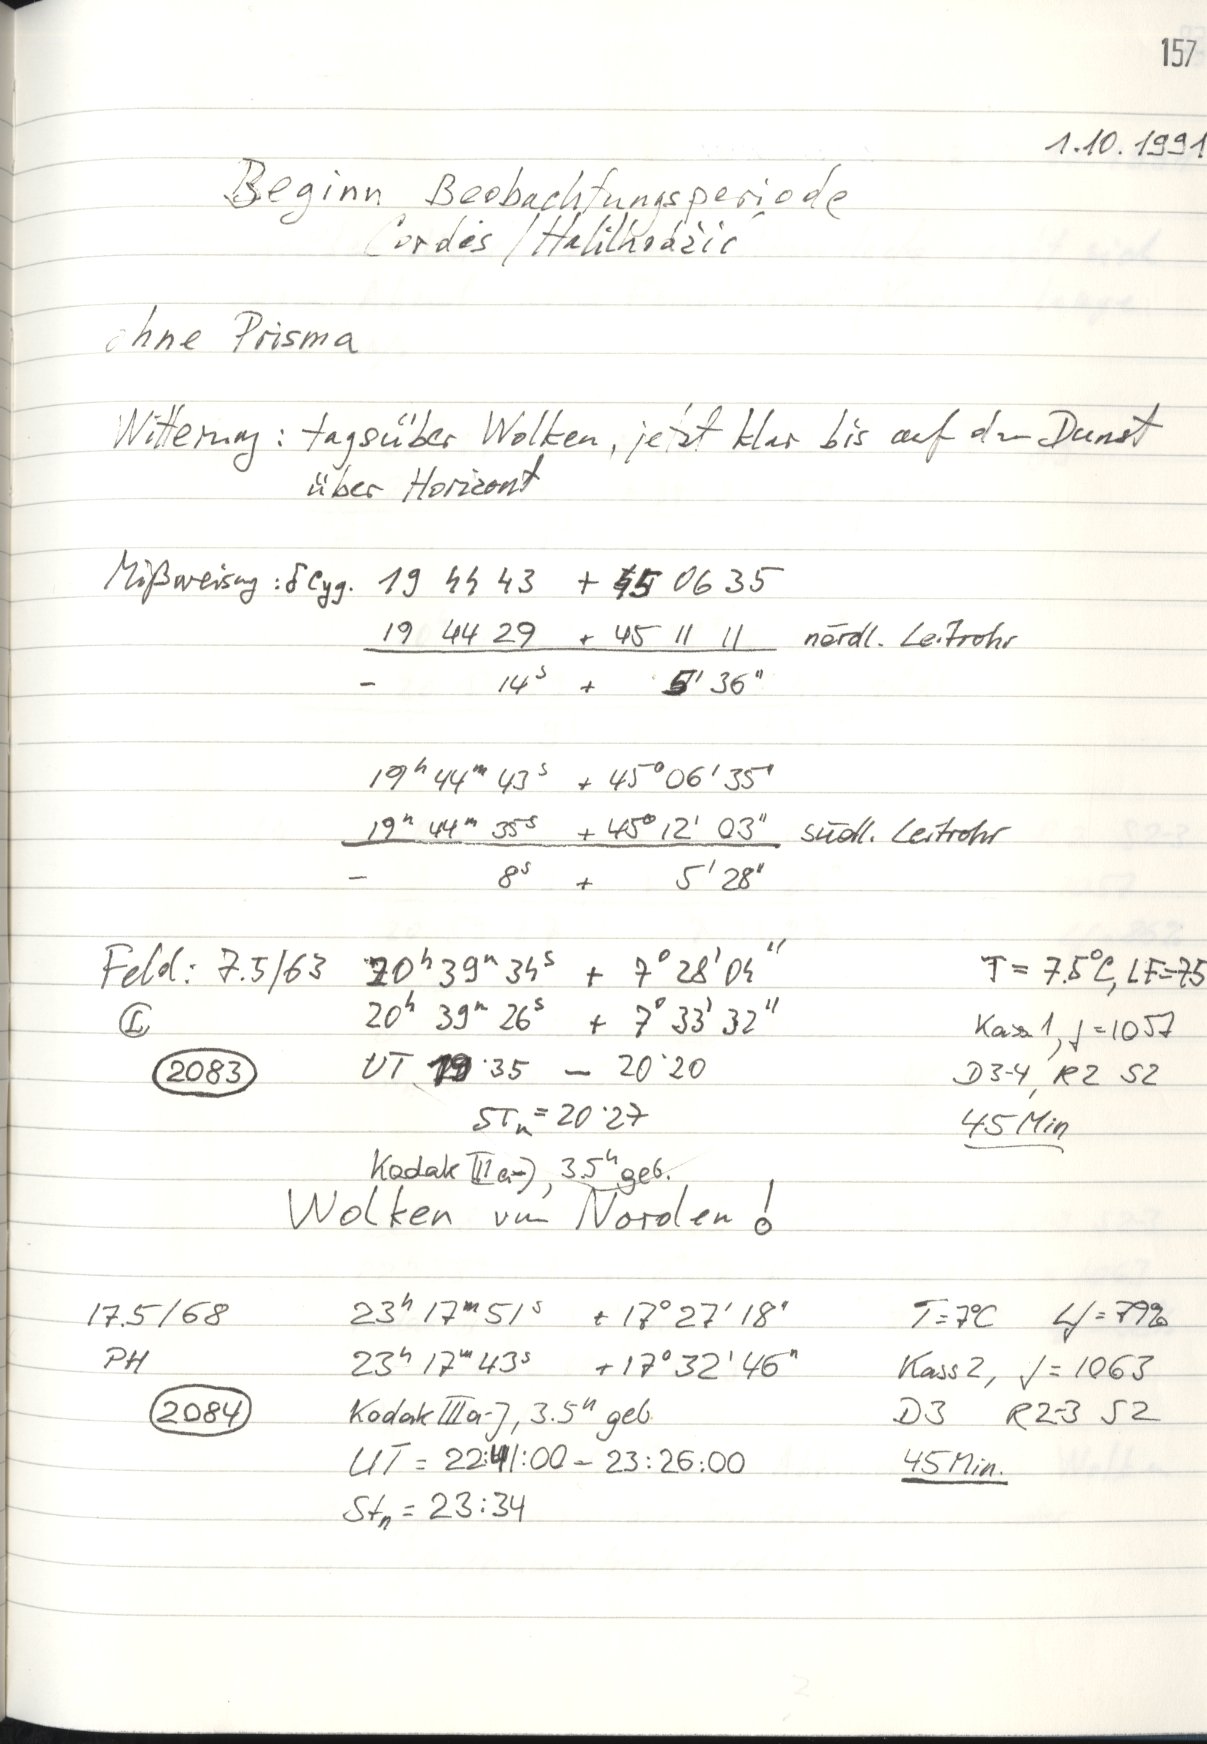 157
1.10.1991
Beginn Beobachtungsperiode
Cordes / Halilhodžić
ohne Prisma
Witterung: tagsüber Wolken, jetzt klar bis auf den Dunst
über Horizont
Mißweisung: δ Cyg. 19 44 43 + 45 06 35
19 44 29 + 45 11 11 nördl. Leitrohr
- 14s + 5' 36"
19h 44m 43s + 45° 06' 35"
19h 44m 35s + 45° 12' 03" südl. Leitrohr
- 8s + 5' 28"
Feld: 7.5/63 20h 39m 34s + 7° 28' 04" T = 7.5°C, LF=75
20h 39m 26s + 7° 33' 32" Kass 1, f=1057
2083 UT 19:35 - 20:20 D3-4, R2 S2
STn = 20:27 45 Min
Kodak IIIa-J, 3.5h geb.
Wolken von Norden!
17.5/68 23h 17m 51s + 17° 27' 18" T=7°C Lf=79%
PH 23h 17m 43s + 17° 32' 46" Kass 2, f=1063
2084 Kodak IIIa-J, 3.5h geb. D3 R2-3 S2
UT = 22:41:00 - 23:26:00 45 Min.
Stn = 23:34